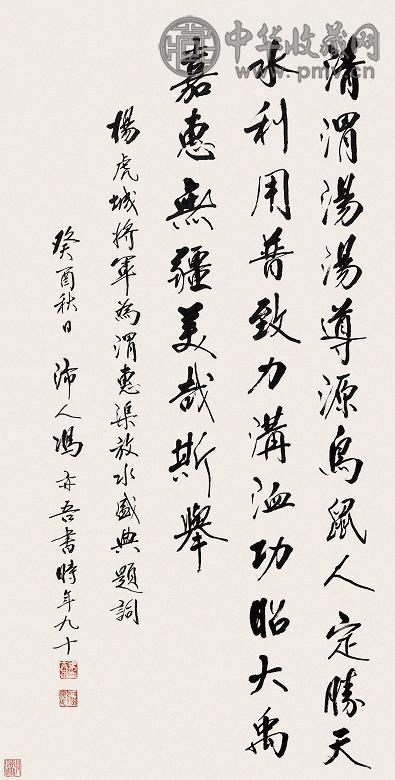 清渭湯湯導源鳥鼠人定勝天
水利用普致力溝洫功昭大禹
嘉惠無疆美哉斯舉
楊虎城將軍為渭惠渠放水盛典題詞
癸酉秋日沛人馮亦吾書時年九十
中华收藏网
www.pmv.cn